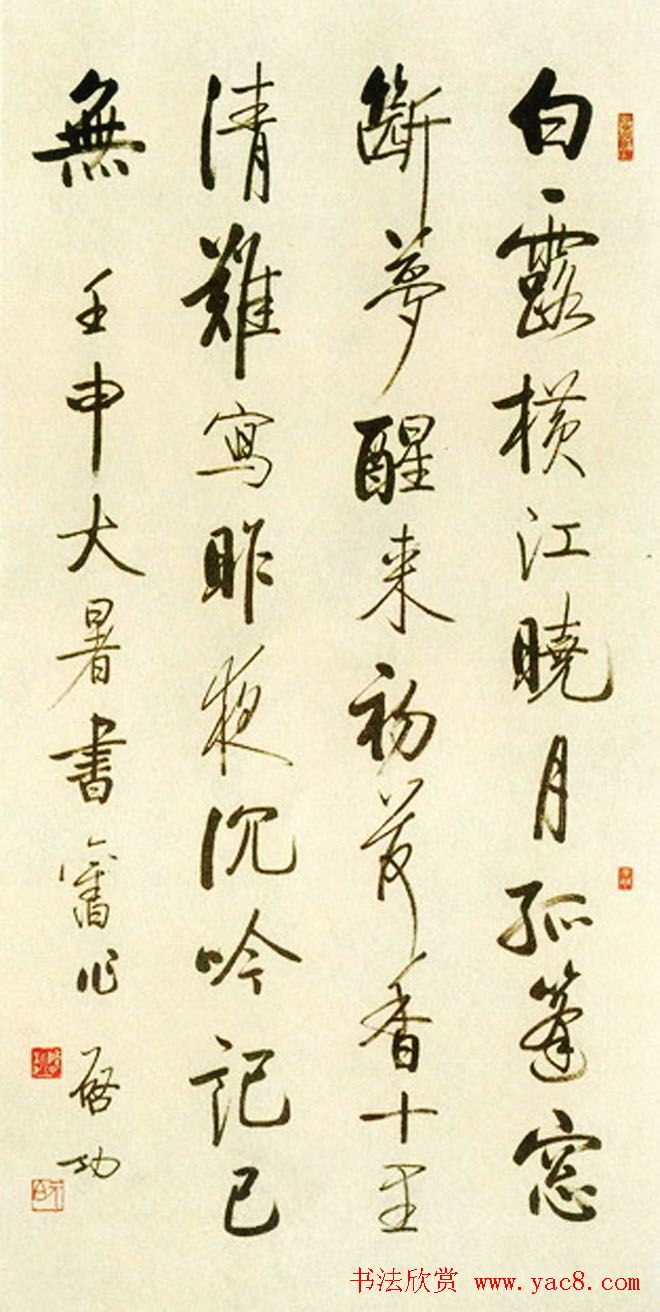 白露横江曉月孤篷窓
斷夢醒来初荷香十里
清難寫昨夜沉吟記已
無 壬申大暑書舊作 啓功
书法欣赏 www.yac8.com